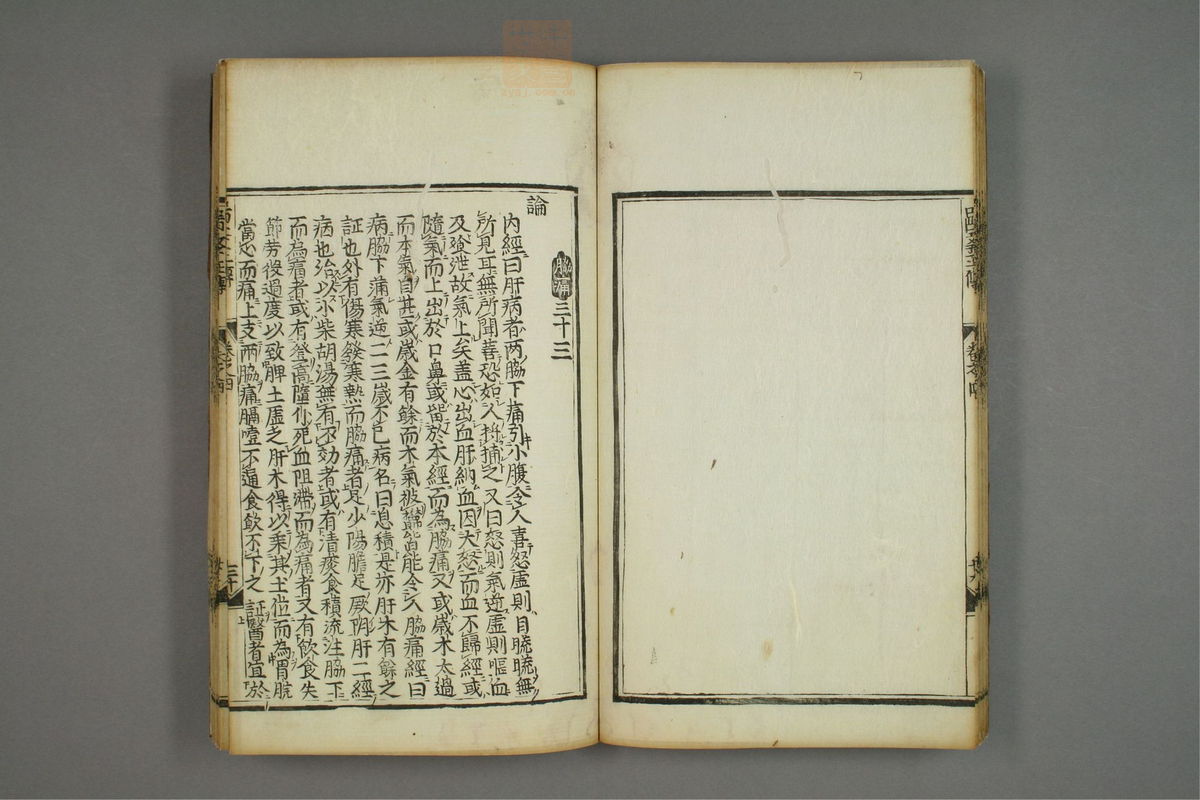 脇痛三十三
論
内經曰肝病者两脇下痛引小腹令人喜怒虛則目䀮䀮無
所見耳無所聞善恐如人将捕之又曰怒則氣逆虛則嘔血
及飱泄故氣上矣盖心出血肝納血因大怒而血不歸經或
隨氣而上出於口鼻或留於本經而為脇痛又或歲木太過
而本氣自甚或歲金有餘而木氣被欝皆能令人脇痛經曰
病脇下滿氣逆二三歲不已病名曰息積是亦肝木有餘之
証也外有傷寒發寒熱而脇痛者足少陽膽足厥阴肝二經
病也治以小柴胡湯無有不効者或有清痰食積流注脇下
而為痛者或有登高墮仆死血阻滯而為痛者又有飲食失
節劳役過度以致脾土虛乏肝木得以乗其土位而為胃脘
當心而痛上支兩脇痛膈噎不通食飲不下之証醫者宜於